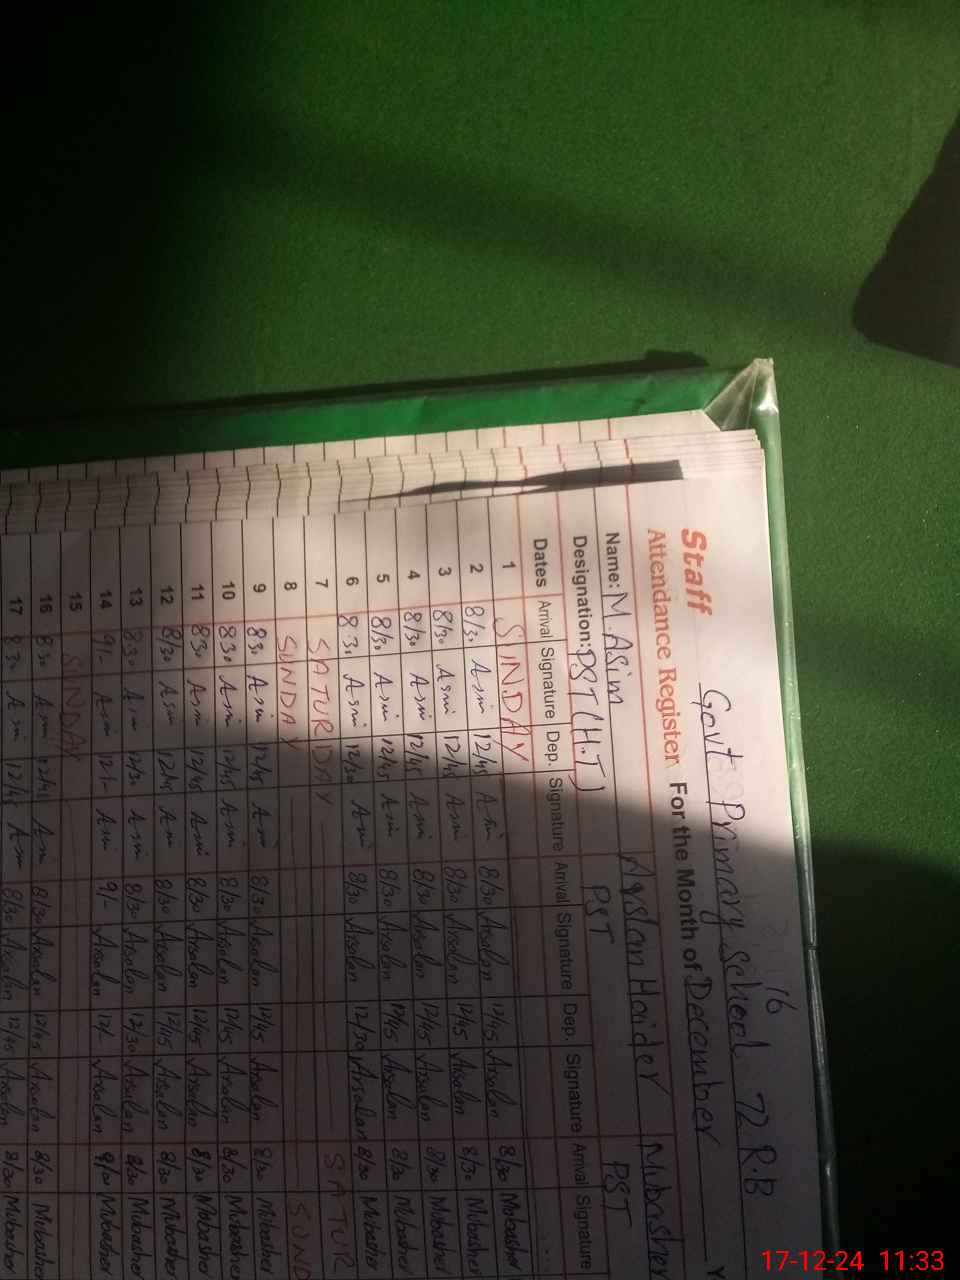 16
Govt Primary School 72 R.B
Staff
Attendance Register For the Month of December
Name: M. Asim Arslan Haider Mubasher
Designation: PST (H.T) PST PST
Dates Arrival Signature Dep. Signature Arrival Signature Dep. Signature Arrival Signature
1 SUNDAY
2 8/30 Asim 12/45 Asim 8/30 Arsalan 12/45 Arsalan 8/30 Mubasher
3 8/30 Asim 12/45 Asim 8/30 Arsalan 12/45 Arsalan 8/30 Mubasher
4 8/30 Asim 12/45 Asim 8/30 Arsalan 12/45 Arsalan 8/30 Mubasher
5 8/30 Asim 12/45 Asim 8/30 Arsalan 12/45 Arsalan 8/30 Mubasher
6 8 30 Asim 12/30 Asim 8/30 Arsalan 12/30 Arsalan 8/30 Mubasher
7 SATURDAY SATUR
8 SUNDAY SUND
9 8 30 Asim 12/45 Asim 8/30 Arsalan 12/45 Arsalan 8/30 Mubasher
10 8 30 Asim 12/45 Asim 8/30 Arsalan 12/45 Arsalan 8/30 Mubasher
11 8 30 Asim 12/45 Asim 8/30 Arsalan 12/45 Arsalan 8/30 Mubasher
12 8/30 Asim 12/45 Asim 8/30 Arsalan 12/45 Arsalan 8/30 Mubasher
13 8 30 Asim 12/30 Asim 8/30 Arsalan 12/30 Arsalan 8/30 Mubasher
14 9/- Asim 12/- Asim 9/- Arsalan 12/- Arsalan 9/00 Mubasher
15 SUNDAY
16 8 30 Asim 12/45 Asim 8/30 Arsalan 12/45 Arsalan 8/30 Mubasher
17 8 30 Asim 12/45 Asim 8/30 Arsalan 12/45 Arsalan 8/30 Mubasher
17-12-24 11:33